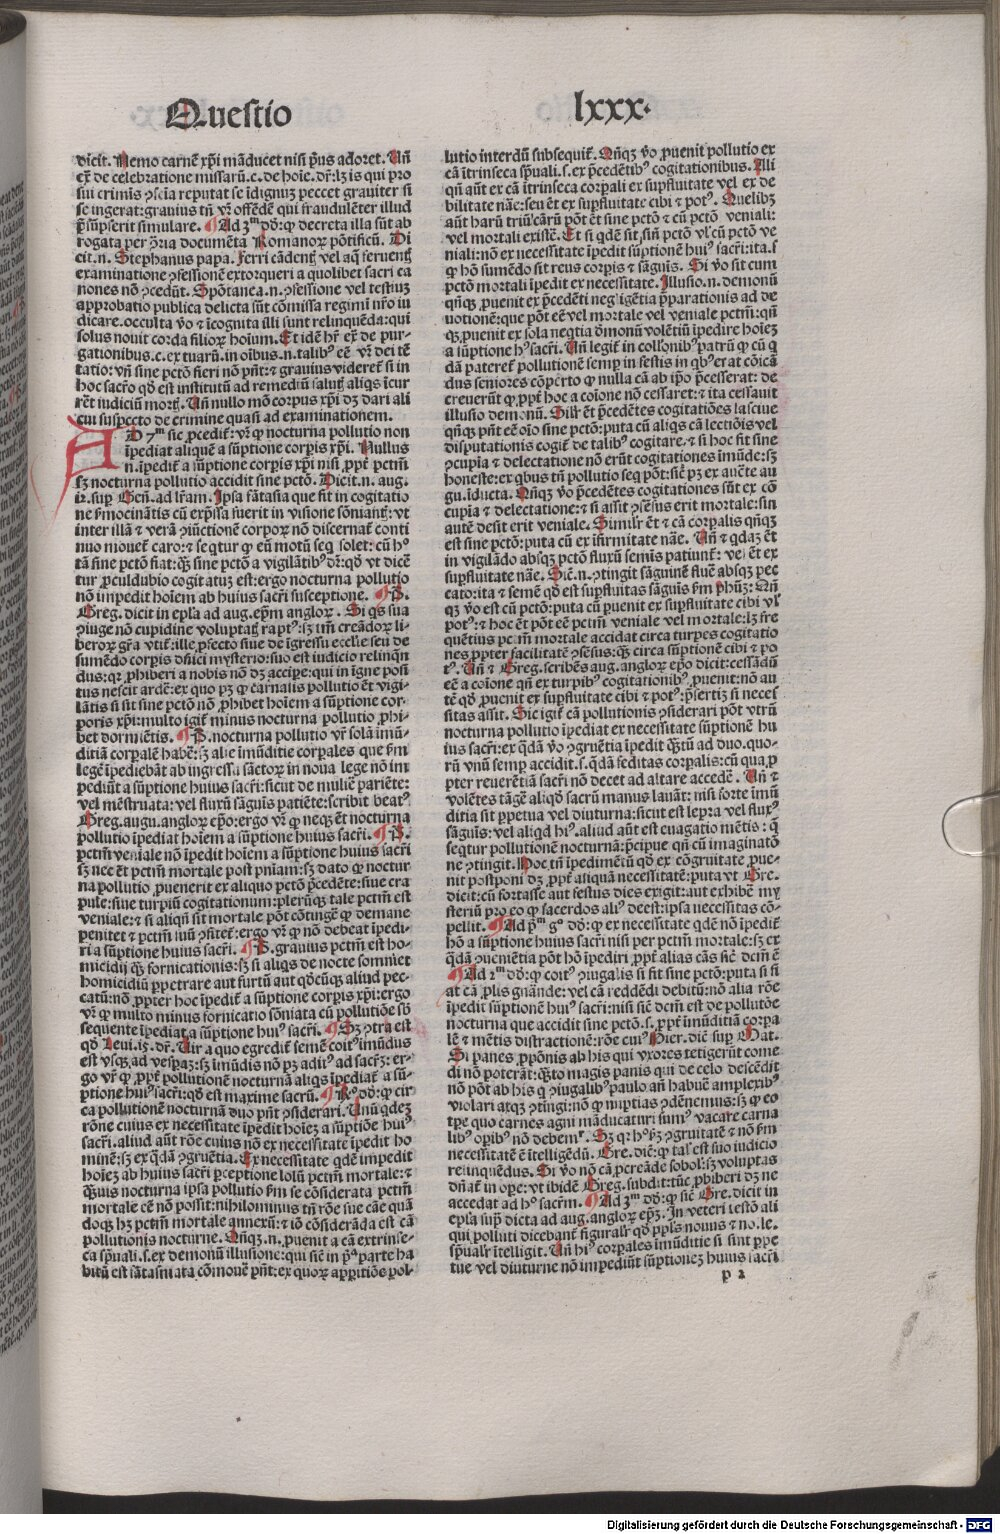 Questio
lxxx.
dicit. Nemo carnē xp̄i māducet nisi pꝰus adoret. Uñ
ex̄ de celebratione missarū.c.de hoīe. dr̄:ꝙ is qui pro
sui crimīs ꝯscīa reputat se īdignuꝫ peccet grauiter si
se ingerat:grauius tn̄ vr̄ offēdē qui fraudulēter illud
p̄sūpserit simulare. Ad 3ᵐ dō:ꝙ decreta illa sūt ab
rogata per ꝯ̄ria documēta Romanoꝝ pōtificū. Di
cit.n. Stephanus papa. Ferri cādentꝭ vel aq̄ feruentꝭ
examinatione ꝯfessionē extorqueri a quolibet sacri ca
nones nō ꝯcedūt. Spōtanea.n. ꝯfessione vel testiuꝫ
approbatio publica delicta sūt cōmissa regimī nr̄o iu
dicare.occulta v̄o ⁊ īcognita illi sunt relinquēda:qui
solus nouit corda filioꝝ hoīum. Et idē hr̄ ex̄ de pur-
gationibus.c.ex tuarū.in oībus.n.talibꝰ eē vr̄ dei tē
tatio:vn̄ sine pctō fieri nō pn̄t:⁊ grauius videret᷑ si in
hoc sacr̄o qd̄ est institutū ad remediū salutꝭ aliqs īcur
rēt iudiciū mortꝭ. Uñ nullo mō corpus xp̄i dꝫ dari ali
cui suspecto de crimine quasi ad examinationem.
AD 7ᵐ sic ꝓcedit᷑: vr̄ ꝙ nocturna pollutio non
īpediat aliquē a sūptione corpis xp̄i. Nullus
.n.īpedit᷑ a sūptione corpis xp̄i nisi ꝓpt̄ pctm̄
sꝫ nocturna pollutio accidit sine pctō. Dicit.n. aug.
12.sup Gen̄.ad lr̄am. Ipsa fātasia que fit in cogitatio
ne s̄mocinātis cū exp̄ssa fuerit in visione sōniantꝭ:vt
inter illā ⁊ verā ꝯiūctionē corpoꝝ nō discernat᷑ conti
nuo mouet᷑ caro:⁊ seqtur ꝙ eū motū seq solet:cū hꝰ
tā sine pctō fiat:qꝫ̄ sine pctō a vigilātibꝰ dr̄:qd̄ vt dicē
tur ꝓculdubio cogitatuꝫ est:ergo nocturna pollutio
nō impedit hoīem ab huius sacr̄i susceptione. ¶ P.
Greg. dicit in epl̄a ad aug.ep̄m angloꝝ. Si qs sua
ꝯiuge nō cupidine voluptatꝭ raptꝰ:sꝫ tm̄ creādoꝝ li-
beroꝝ gr̄a vtit᷑:ille ꝓfecto siue de īgressu ecclīe seu de
sumēdo corpis dn̄ici mysterio:suo est iudicio relinqn
dus:qꝛ ꝓhiberi a nobis nō dꝫ accipe:qui in īgne posi
tus nescit ardē:ex quo pꝫ ꝙ carnalis pollutio ēt vigi-
lātis si sit sine pctō nō ꝓhibet hoīem a sūptione cor-
poris xp̄i:multo igit᷑ minus nocturna pollutio ꝓhi-
bet dormiētis. ¶ P. nocturna pollutio vr̄ solā imū-
ditiā corpalē habē:sꝫ alie imūditie corpales que s̄m
legē īpediebāt ab ingressu sāctoꝝ in noua lege nō im
pediūt a sūptione huius sacr̄i:sicut de muliē pariēte:
vel mēstruata:vel fluxū sāguīs patiēte:scribit beatꝰ
Greg.augu.angloꝝ ep̄o:ergo vr̄ ꝙ neqꝫ ēt nocturna
pollutio īpediat hoīem a sūptione huius sacr̄i. ¶ P.
pctm̄ veniale nō īpedit hoīem a sūptione huius sacr̄i
sꝫ nec ēt pctm̄ mortale post pn̄iam:sꝫ dato ꝙ noctur
na pollutio ꝓuenerit ex aliquo pctō p̄cedēte:siue cra
pule:siue turpiū cogitationum:plerūqꝫ tale pctm̄ est
veniale:⁊ si aliqn̄ sit mortale pōt cōtingē ꝙ de mane
penitet ⁊ pctm̄ suū ꝯfitet᷑:ergo vr̄ ꝙ nō debeat īpedi-
ri a sūptione huius sacr̄i. ¶ P. grauius pctm̄ est ho-
micidij qꝫ̄ fornicationis:sꝫ si aliqs de nocte somniet
homicidiū ꝑpetrare aut furtū aut qd̄cūqꝫ aliud pec-
catū:nō ꝓpter hoc īpedit᷑ a sūptione corpis xp̄i:ergo
vr̄ ꝙ multo minus fornicatio sōniata cū pollutiōe sb̄
sequente īpediat a sūptione huiꝰ sacr̄i. ¶ Sꝫ ꝯtra est
qd̄ Leui.15.dr̄. Uir a quo egredit᷑ semē coitꝰ īmūdus
est vsqꝫ ad vesperaꝫ:sꝫ īmūdis nō pꝫ aditꝰ ad sacrꝫ:er-
go vr̄ ꝙ ꝓpt̄ pollutionē nocturnā aliqs īpediat᷑ a sū-
ptione huiꝰ sacr̄i:qd̄ est maxime sacrū. ¶ Rº dō:ꝙ cir
ca pollutionē nocturnā duo pn̄t ꝯsiderari. Unū qdeꝫ
rōne cuius ex necessitate īpedit hoīeꝫ a sūptiōe huiꝰ
sacr̄i.aliud aūt rōe cuius nō ex necessitate īpedit ho
minē:sꝫ ex qdā ꝯgruētia. Ex necessitate qdē impedit
hoīeꝫ ab huius sacr̄i ꝑceptione solū pctm̄ mortale:⁊
qꝫ̄uis nocturna ipsa pollutio s̄m se cōsiderata pctm̄
mortale eē nō possit:nihilominus tn̄ rōe sue cāe quā
doqꝫ hꝫ pctm̄ mortale annexū:⁊ iō cōsiderāda est cā
pollutionis nocturne. Qn̄qꝫ.n. ꝓuenit a cā extrinse-
ca sp̄uali.s.ex demonū illusione:qui sic̄ in pᵃ parte ha
bitū est fātasmata cōmouē pn̄t:ex quoꝝ apparitiōe pol-
lutio interdū subsequit᷑. Qn̄qꝫ v̄o ꝓuenit pollutio ex
cā ītrinseca sp̄uali.s.ex p̄cedētibꝰ cogitationibus. Ali
qn̄ aūt ex cā ītrinseca corpali ex supfluitate vel ex de
bilitate nāe:seu ēt ex supfluitate cibi ⁊ potꝰ. Quelibꝫ
aūt harū triū cārū pōt ēt sine pctō ⁊ cū pctō veniali:
vel mortali existē. Et si qdē sit sīn̄ pctō vl̄ cū pctō ve
niali:nō ex necessitate īpedit sūptionē huiꝰ sacr̄i:ita.s.
ꝙ hō sumēdo sit reus corpis ⁊ sāguīs. Si v̄o sit cum
pctō mortali īpedit ex necessitate. Illusio.n. demonū
qn̄qꝫ ꝓuenit ex p̄cedēti negligētia p̄parationis ad de
uotionē:que pōt eē vel mortale vel veniale pctm̄:qn̄
qꝫ ꝓuenit ex sola neqtia demonū volētiū īpedire hoīeꝫ
a sūptione hꝰ sacr̄i. Uñ legit᷑ in collōnibꝰ patrū ꝙ cū q
dā pateret᷑ pollutionē semꝑ in festis in qbꝰ erat cōicā
dus seniores cōperto ꝙ nulla cā ab ipo p̄cesserat: de
creuerūt ꝙ ꝓpt̄ hoc a cōione nō cessaret:⁊ ita cessauit
illusio demonū. Silr̄ ēt p̄cedētes cogitatiōes lasciue
qn̄qꝫ pn̄t eē oīo sine pctō:puta cū aliqs cā lectiōis vel
disputationis cogit᷑ de talibꝰ cogitare.⁊ si hoc fit sine
ꝯcupīa ⁊ delectatione nō erūt cogitationes īmūde:sꝫ
honeste:ex qbus tn̄ pollutio seq pōt:sic̄ pꝫ ex auctē au
gu.iducta. Qn̄qꝫ v̄o p̄cedētes cogitationes sūt ex cō
cupīa ⁊ delectatione:⁊ si assit ꝯsēsus erit mortale:sin
autē desit erit veniale. Similr̄ ēt ⁊ cā corpalis qn̄qꝫ
est sine pctō:puta cū ex īfirmitate nāe. Uñ ⁊ qdaꝫ ēt
in vigilādo absqꝫ pctō fluxū semīs patiunt᷑:vel ēt ex
supfluitate nāe. Sic̄.n. ꝯtingit sāguinē fluē absqꝫ pec
cato:ita ⁊ semē qd̄ est supfluitas sāguīs s̄m ph̄uꝫ. Qn̄
qꝫ v̄o est cū pctō:puta cū ꝓuenit ex supfluitate cibi vl̄
potꝰ:⁊ hoc ēt pōt eē pctm̄ veniale vel mortale:lꝫ fre
quētius pctm̄ mortale accidat circa turpes cogitatio
nes ꝓpter facilitatē ꝯsēsus:qꝫ̄ circa sūptionē cibi ⁊ po
tꝰ. Uñ ⁊ Greg.scribēs aug.angloꝝ ep̄o dicit:cessādū
eē a cōione qn̄ ex turpibꝰ cogitationibꝰ ꝓuenit:nō au
tē qd̄ ꝓuenit ex supfluitate cibi ⁊ potꝰ:p̄sertiꝫ si neces
sitas assit. Sic igit᷑ ex cā pollutionis ꝯsiderari pōt vtrū
nocturna pollutio īpediat ex necessitate sūptionē hu
ius sacr̄i:ex qdā v̄o ꝯgruētia īpedit qꝫ̄tū ad duo.quo-
rū vnū semꝑ accidit.s.qdā feditas corpalis:cū qua ꝓ
pter reuerētiā sacr̄i nō decet ad altare accedē. Uñ ⁊
volētes tāgē aliqd̄ sacrū manus lauāt:nisi forte īmū
ditia sit ꝑpetua vel diuturna:sicut est lepra vel fluxꝰ
sāguīs:vel aliqd hiꝰ.aliud aūt est euagatio mētis:q̄
seqtur pollutionē nocturnā:p̄cipue qn̄ cū imaginatō
ne ꝯtingit. Hoc tn̄ īpedimētū qd̄ ex cōgruitate ꝓue-
nit postponi dꝫ ꝓpt̄ aliquā necessitatē:puta vt Gre.
dicit:cū fortasse aut festus dies exigit:aut exhibē my
steriū pro eo ꝙ sacerdos aliꝰ deest:ipsa necessitas cō-
pellit. ¶ Ad pᵐ gº dō:ꝙ ex necessitate qdē nō īpedit᷑
hō a sūptione huius sacr̄i nisi per pctm̄ mortale:sꝫ ex
qdā ꝯueniētia pōt hō īpediri ꝓpt̄ alias cās sic̄ dcm̄ ē
¶ Ad 2ᵐ dō:ꝙ coitꝰ ꝯiugalis si fit sine pctō:puta si fi
at cā ꝓlis gn̄āde:vel cā reddēdi debitū:nō alia rōe
īpedit sūptionē huiꝰ sacr̄i:nisi sic̄ dcm̄ est de pollutōe
nocturna que accidit sine pctō.s.ꝓpt̄ īmūditiā corpa
lē ⁊ mētis distractionē:rōe cuiꝰ Hier.dic̄ sup Mat.
Si panes ꝓpōnis ab his qui vxores tetigerūt come
di nō poterāt:qꝫ̄to magis panis qui de celo descēdit
nō pōt ab his q ꝯiugalibꝰ paulo an̄ habuē amplexibꝰ
violari atqꝫ ꝯtingi:nō ꝙ nuptias ꝯdēnemus:sꝫ ꝙ eo
tpe quo carnes agni māducaturi sumꝰ vacare carna
libꝰ opibꝰ nō debemꝰ. Sꝫ qꝛ hꝰ pꝫ ꝯgruitatē ⁊ nō s̄m
necessitatē ē ītelligēdū. Gre.dic̄:ꝙ tal̄ est suo iudicio
relinquēdus. Si v̄o nō cā ꝓcreāde sobol̄:sꝫ voluptas
dn̄at᷑ in ope:vt ibidē Greg.subdit:tūc ꝓhiberi dꝫ ne
accedat ad hꝰ sacr̄m. ¶ Ad 3ᵐ dō:ꝙ sic̄ Gre.dicit in
epl̄a supͣ dicta ad aug.angloꝝ ep̄ꝫ. In veteri testō ali
qui polluti dicebant᷑ figuralr̄ qd̄ ppl̄s nouus ⁊ no.le.
sp̄ualr̄ ītelligit. Uñ hiꝰ corpales īmūditie si sint ꝑpe
tue vel diuturne nō impediūt sūptioneꝫ huius sacr̄i
p 2
Digitalisierung gefördert durch die Deutsche Forschungsgemeinschaft - DFG